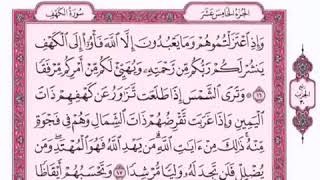 سُورَةُ الكَهْفِ الجُزْءُ الخَامِسَ عَشَرَ
وَإِذِ ٱعْتَزَلْتُمُوهُمْ وَمَا يَعْبُدُونَ إِلَّا ٱللَّهَ فَأْوُۥٓا۟ إِلَى ٱلْكَهْفِ
يَنشُرْ لَكُمْ رَبُّكُم مِّن رَّحْمَتِهِۦ وَيُهَيِّئْ لَكُم مِّنْ أَمْرِكُم مِّرْفَقًا
۝١٦ وَتَرَى ٱلشَّمْسَ إِذَا طَلَعَت تَّزَٰوَرُ عَن كَهْفِهِمْ ذَاتَ
ٱلْيَمِينِ وَإِذَا غَرَبَت تَّقْرِضُهُمْ ذَاتَ ٱلشِّمَالِ وَهُمْ فِى فَجْوَةٍ
مِّنْهُ ذَٰلِكَ مِنْ ءَايَٰتِ ٱللَّهِ مَن يَهْدِ ٱللَّهُ فَهُوَ ٱلْمُهْتَدِ وَمَن
يُضْلِلْ فَلَن تَجِدَ لَهُۥ وَلِيًّا مُّرْشِدًا ۝١٧ وَتَحْسَبُهُمْ أَيْقَاظًا